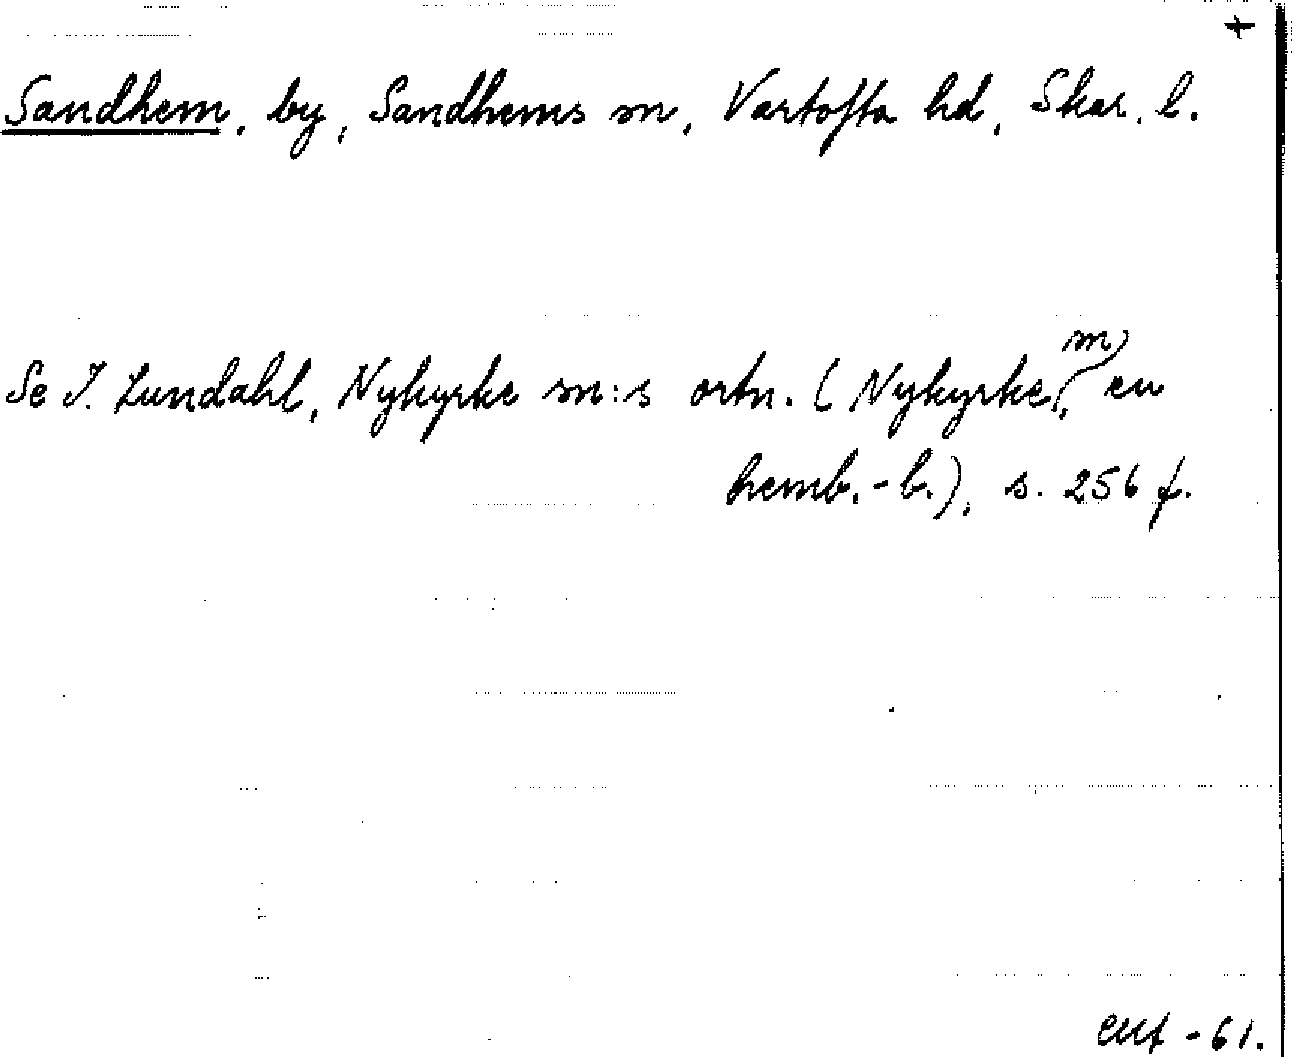 +
Sandhem, by, Sandhems sn, Vartofta hd, Skar. l.
Se I. Lundahl, Nykyrke sn:s ortn. (Nykyrke sn, en
hemb.-b.), s. 256 f.
-61.